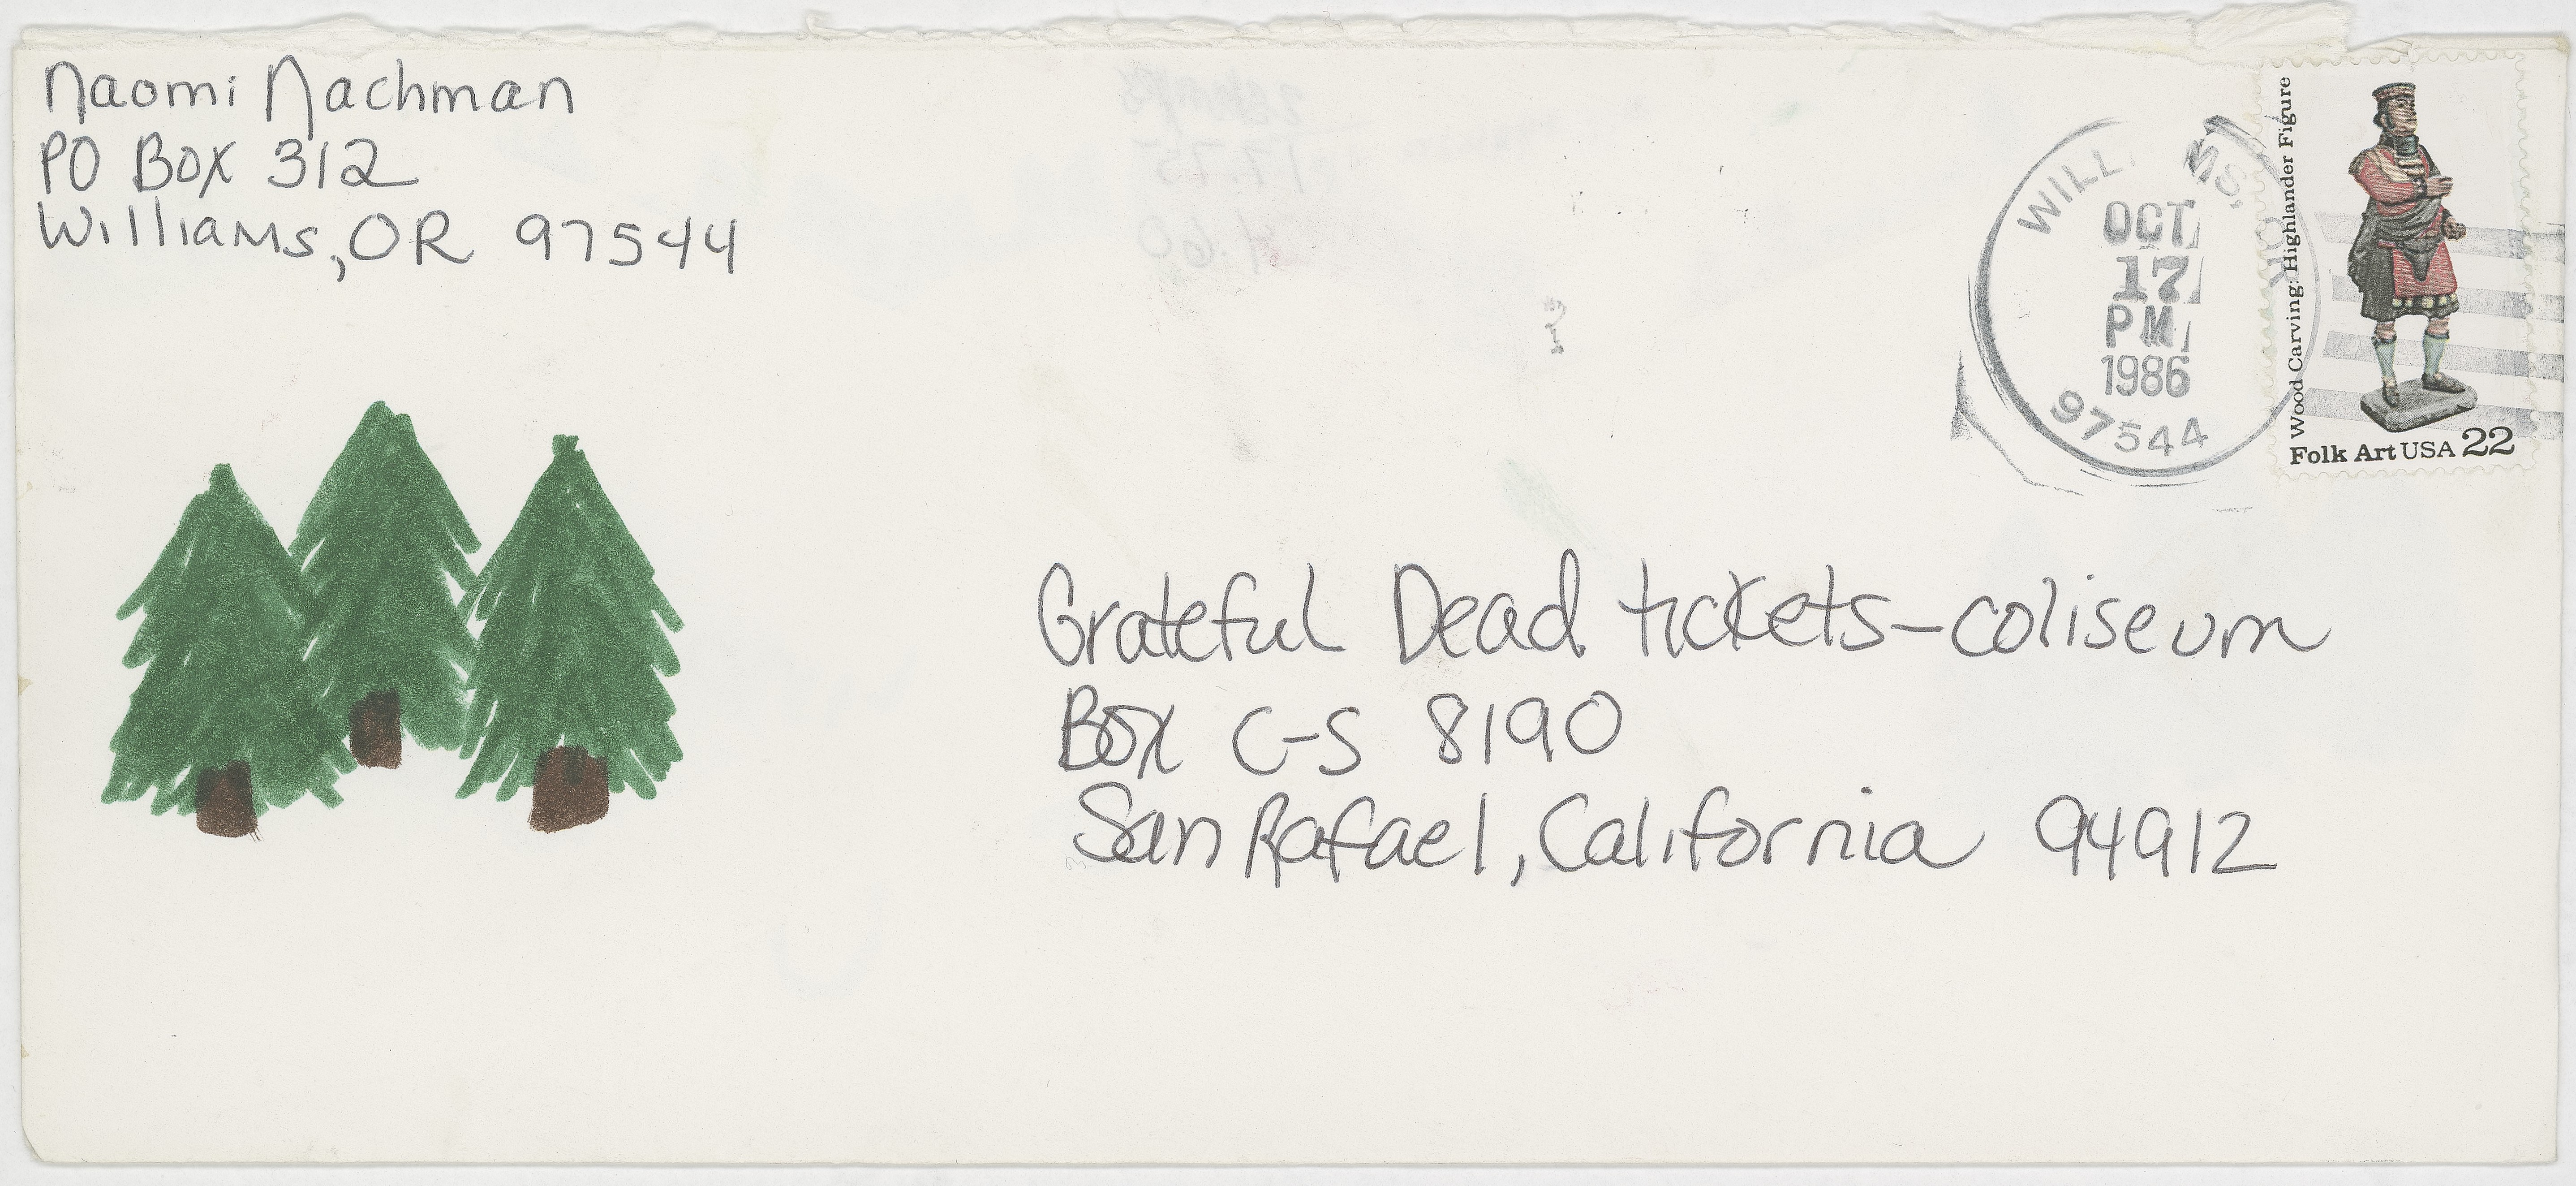 Naomi Nachman
PO Box 312
Williams, OR 97544
WILL MS, OR
OCT
17
PM
1986
97544
Wood Carving: Highlander Figure
Folk Art USA 22
Grateful Dead tickets-coliseum
Box C-S 8190
San Rafael, California 94912